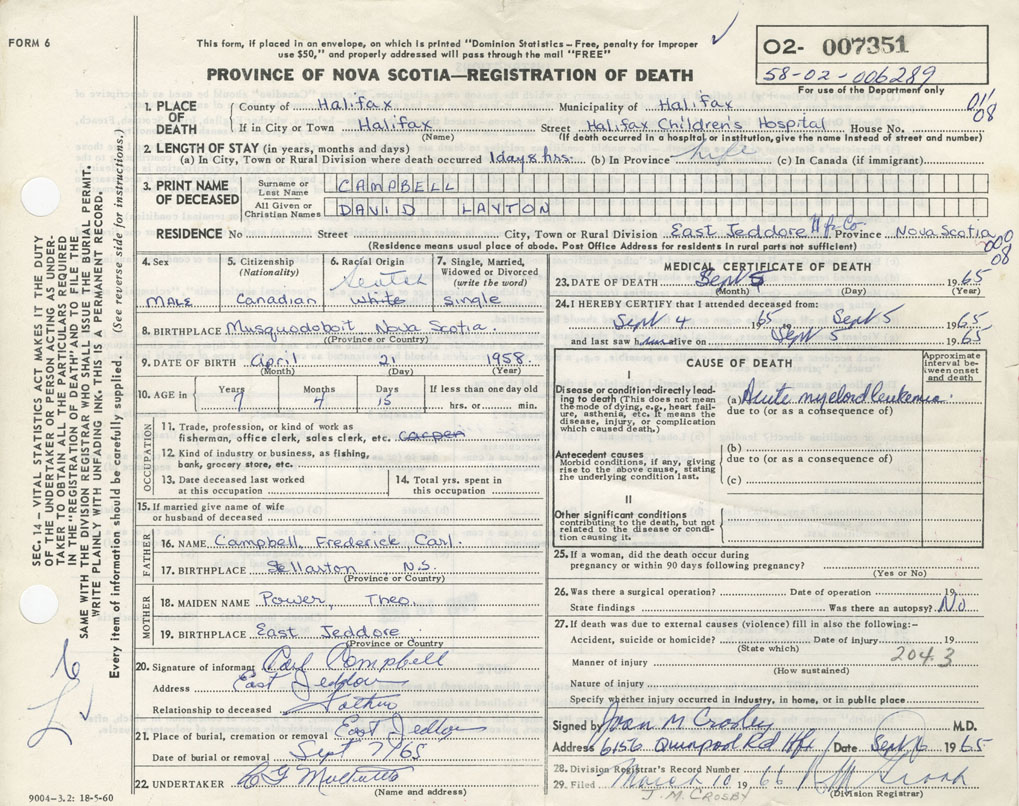 FORM 6
This form, if placed in an envelope, on which is printed "Dominion Statistics – Free, penalty for improper
use $50," and properly addressed will pass through the mail "FREE"
02- 007351
58-02-006289
For use of the Department only
PROVINCE OF NOVA SCOTIA—REGISTRATION OF DEATH
1. PLACE OF DEATH
County of Halifax Municipality of Halifax
011
08
If in City or Town Halifax Street Halifax Children's Hospital House No.
(Name) (If death occurred in a hospital or institution, give the name instead of street and number)
2. LENGTH OF STAY (in years, months and days)
(a) In City, Town or Rural Division where death occurred 1 day 8 hrs. (b) In Province Life (c) In Canada (if immigrant)
3. PRINT NAME OF DECEASED
Surname or Last Name CAMPBELL
All Given or Christian Names DAVID LAYTON
RESIDENCE No Street City, Town or Rural Division East Jeddore Hfx Co Province Nova Scotia
(Residence means usual place of abode. Post Office Address for residents in rural parts not sufficient)
000
08
4. Sex
MALE
5. Citizenship
(Nationality)
Canadian
6. Racial Origin
White
7. Single, Married,
Widowed or Divorced
(write the word)
single
8. BIRTHPLACE Musquodoboit Nova Scotia.
(Province or Country)
9. DATE OF BIRTH April 21 1958
(Month) (Day) (Year)
10. AGE in
Years 7
Months 4
Days 15
If less than one day old
hrs. or min.
OCCUPATION
11. Trade, profession, or kind of work as
fisherman, office clerk, sales clerk, etc.
12. Kind of industry or business, as fishing,
bank, grocery store, etc.
13. Date deceased last worked
at this occupation
14. Total yrs. spent in
this occupation
15. If married give name of wife
or husband of deceased
FATHER
16. NAME Campbell, Frederick Carl.
17. BIRTHPLACE Stellarton N.S.
(Province or Country)
MOTHER
18. MAIDEN NAME Power, Theo.
19. BIRTHPLACE East Jeddore
(Province or Country)
20. Signature of informant Carl Campbell
Address East Jeddore
Relationship to deceased Father
21. Place of burial, cremation or removal East Jeddore
Date of burial or removal Sept 7/65
22. UNDERTAKER
(Name and address)
9004-3.2: 18-5-60
MEDICAL CERTIFICATE OF DEATH
23. DATE OF DEATH Sept 5 1965
(Month) (Day) (Year)
24. I HEREBY CERTIFY that I attended deceased from:
Sept 4 1965 to Sept 5 1965
and last saw him alive on Sept 5 1965
CAUSE OF DEATH
Approximate
interval be-
tween onset
and death
I
Disease or condition directly lead-
ing to death (This does not mean
the mode of dying, e.g., heart fail-
ure, asthenia, etc. It means the
disease, injury, or complication
which caused death.)
(a) Acute myeloid leukemia.
due to (or as a consequence of)
Antecedent causes
Morbid conditions, if any, giving
rise to the above cause, stating
the underlying condition last.
(b)
due to (or as a consequence of)
(c)
II
Other significant conditions
contributing to the death, but not
related to the disease or condi-
tion causing it.
25. If a woman, did the death occur during
pregnancy or within 90 days following pregnancy?
(Yes or No)
26. Was there a surgical operation? Date of operation 19
State findings Was there an autopsy? No
27. If death was due to external causes (violence) fill in also the following:–
Accident, suicide or homicide? Date of injury 19
(State which)
204.3
Manner of injury
(How sustained)
Nature of injury
Specify whether injury occurred in industry, in home, or in public place
Signed by Joan M Crosby M.D.
Address 6156 Quinpool Rd Hfx Date Sept 6 1965
28. Division Registrar's Record Number
29. Filed March 10 1966
J. M. CROSBY
(Division Registrar)
SEC. 14 – VITAL STATISTICS ACT MAKES IT THE DUTY
OF THE UNDERTAKER OR PERSON ACTING AS UNDER-
TAKER TO OBTAIN ALL THE PARTICULARS REQUIRED
IN THE "REGISTRATION OF DEATH" AND TO FILE THE
SAME WITH THE DIVISION REGISTRAR WHO SHALL ISSUE THE BURIAL PERMIT.
WRITE PLAINLY WITH UNFADING INK. THIS IS A PERMANENT RECORD.
Every item of information should be carefully supplied. (See reverse side for instructions.)